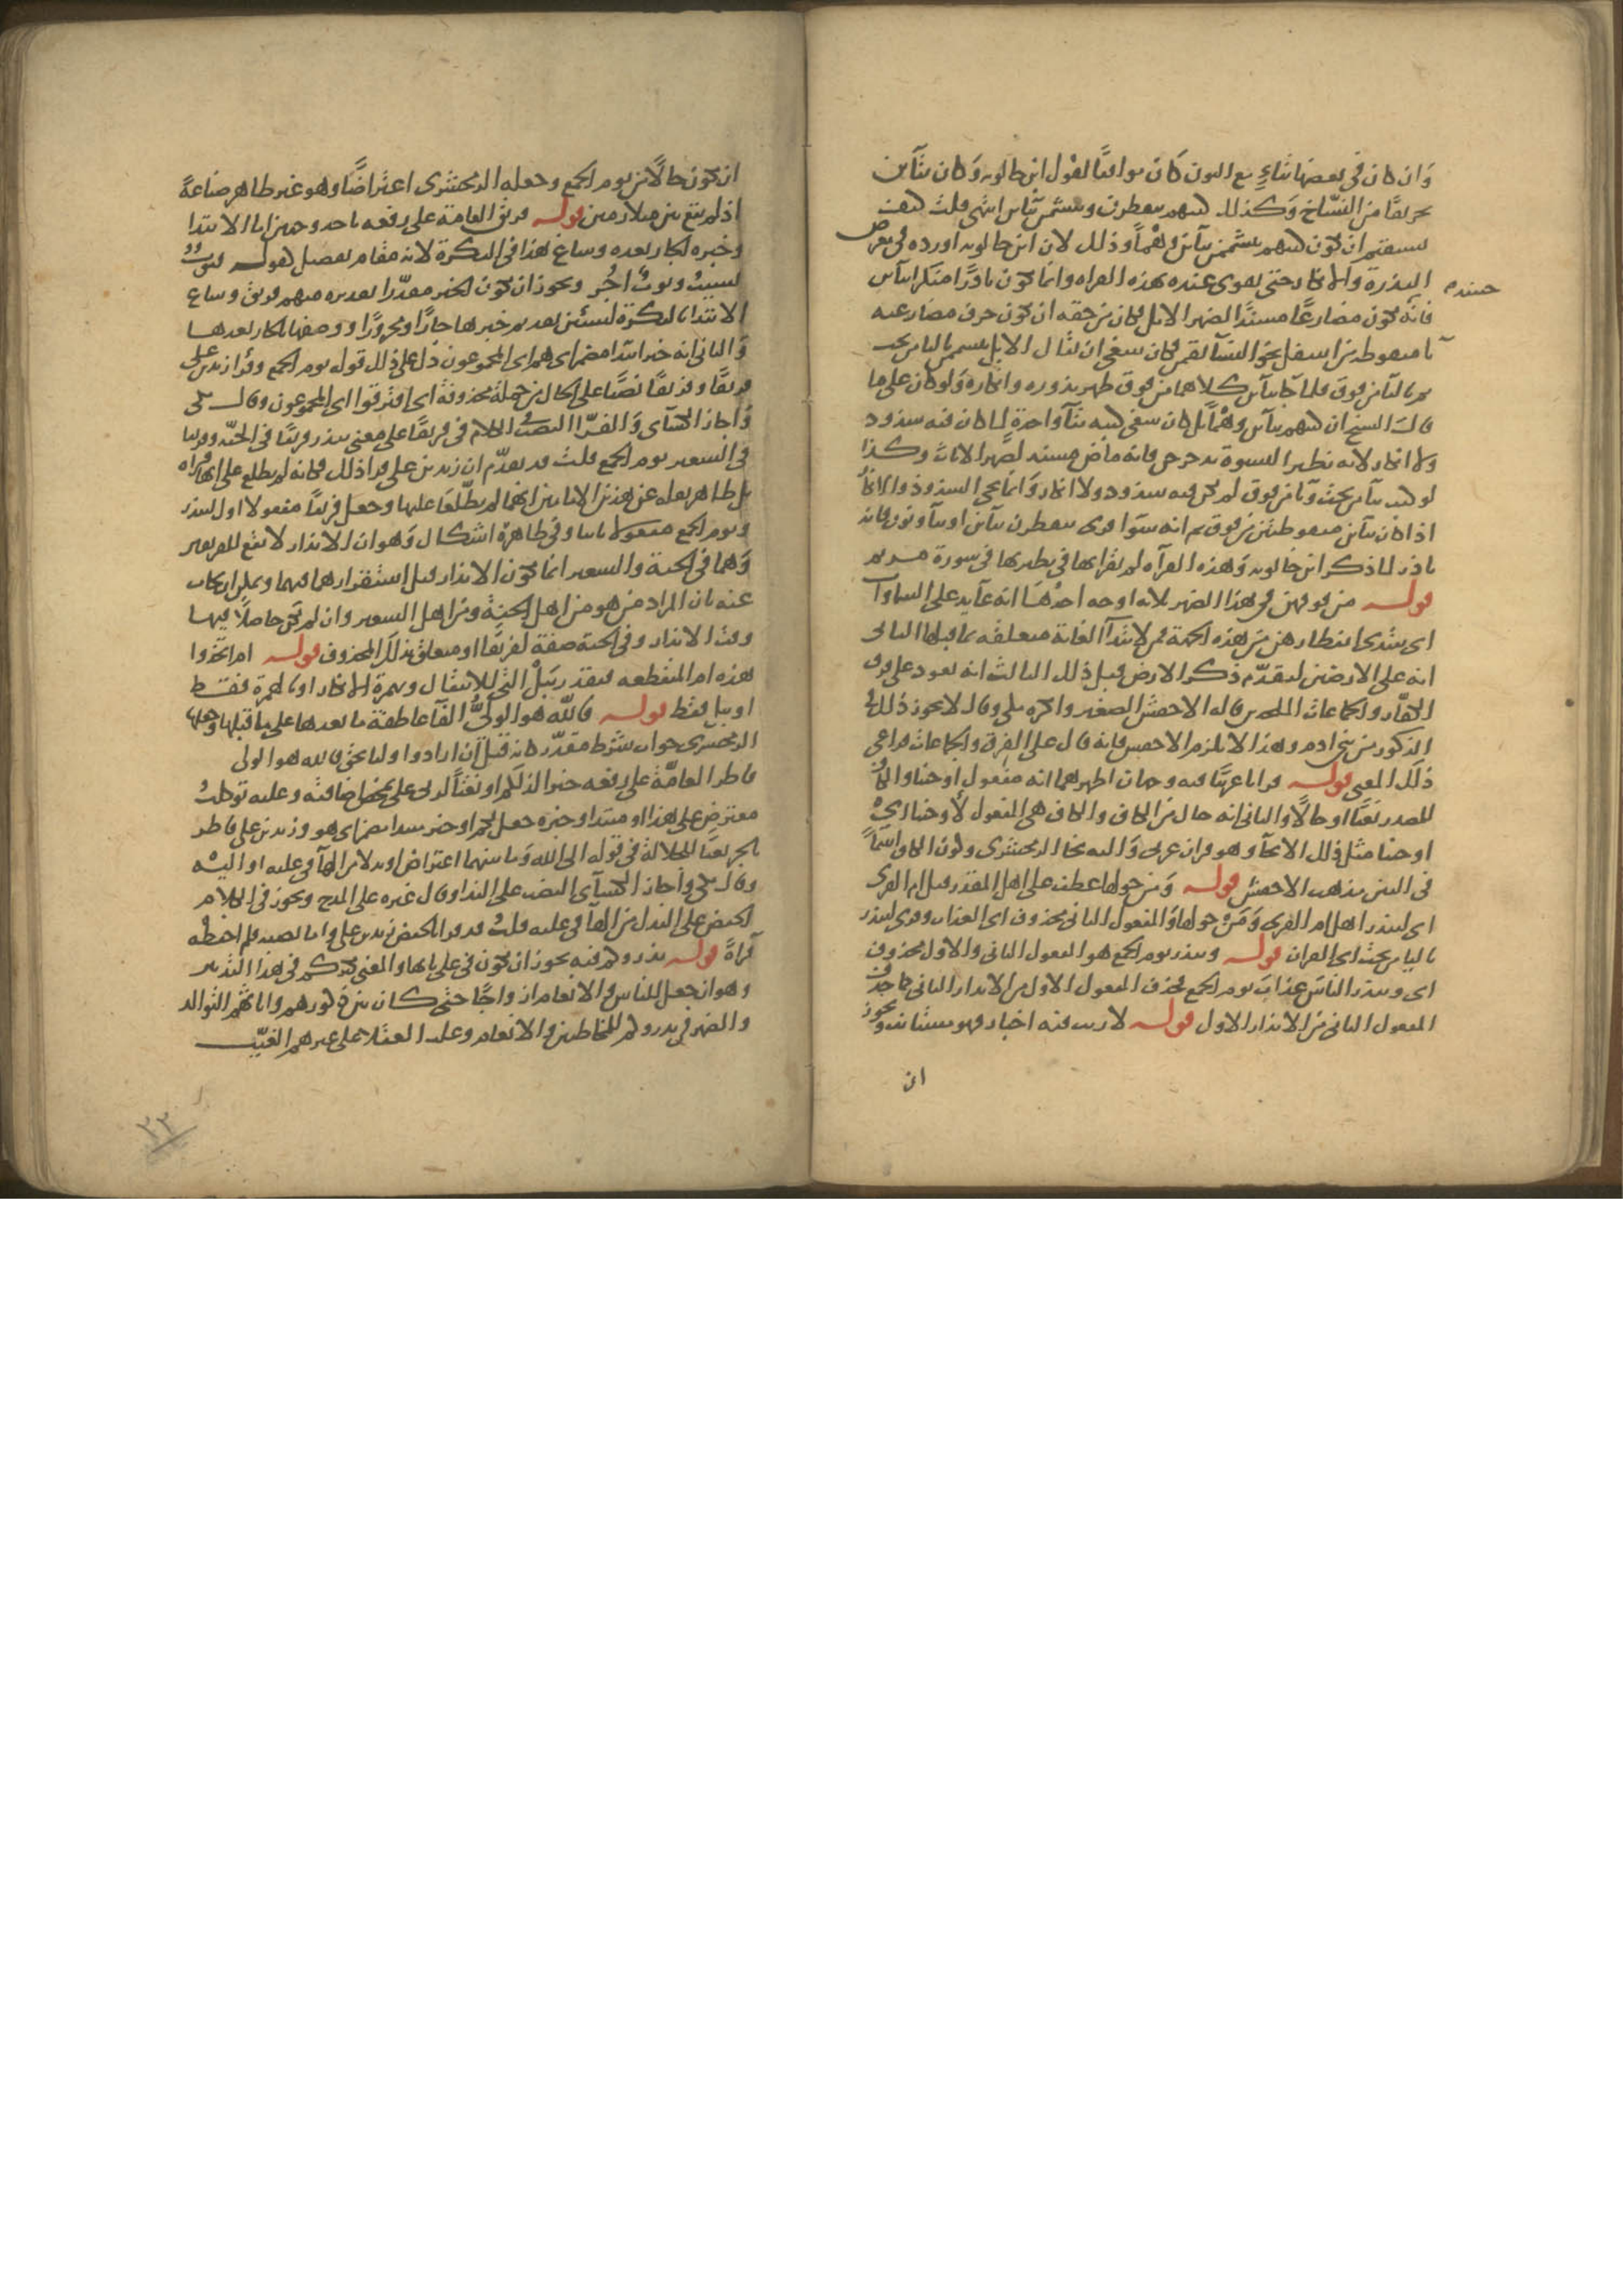 وان كان فى بعضها بتاء مع النون كان موافقا لقول ابن خالويه وكان بتاين
تحريفا من النساخ وكذلك كتبهم يتفطرن وتتشممن بتاين انتهى قلت كيف
يستقيم ان يكون كتبهم تتشممن بتاين وهما وذلك لان ابن خالويه اورده فى معرض
الندرة والانكار حتى يقوى عنده بهذه القراه وانما يكون نادرا منكرا بتاين
حينئذ
فانه يكون مضارعا مسندا لضمير الابل فكان من حقه ان يكون حرف مضارعته
يا منقوطة من اسفل نحو النسآ يقمن فكان ينبغى ان يقال الابل يتشممن باليا من تحت
ثم بالتآ من فوق فلما جا بتاين كلاهما من فوق ظهر ندوره وانكاره ولو كان على ما
قال الشيخ ان كتبهم بتاين وهمآ بل كان ينبغى كتبه بتآ واحدة لما كان فيه شذوذ
ولا انكار لانه نظير النسوة تدحرجن فانه ماض مسند لضمير الاناث وكذا
لو كتب بيا من تحت وتا من فوق لم يكن فيه شذوذ ولا انكار وانما يجى الشذوذ والانكار
اذا كان بتاين منقوطتين من فوق ثم انه سوا قرى يتفطرن بتاين او بيآ ونون فانه
نادر لما ذكر ابن خالويه وهذه القرآه لم نقرا بها فى نظيرها فى سورة مريم
قوله من فوقهن فى هذا الضمير ثلاثة اوجه احدها انه عآيد على السماوات
اى يبتدى انفطارهن من هذه الجهة فمن لابتدآ الغاية متعلقه بما قبلها الثانى
انه على الارضين لتقدم ذكر الارض قبل ذلك الثالث انه يعود على فرق
الكفار والجماعات الملحدين قاله الاخفش الصغير وانكره مكى وقال لا يجوز ذلك فى
الذكور من بنى ادم وهذا لا يلزم الاخفش فانه قال على الفرق والجماعات فراعى
ذلك المعنى قوله قرانا عربيا فيه وجهان اظهرهما انه مفعول اوحينا والكاف
للمصدر نعتا او حالا والثانى انه حال من الكاف والكاف هى المفعول لأوحينا اى
اوحينا مثل ذلك الايحآ وهو قران عربى واليه نحا الزمخشرى وكون الكاف اسما
فى النثر مذهب الاخفش قوله ومن حولها عطف على اهل المقدر قبل ام القرى
اى لتنذر اهل ام القرى ومن حولها والمفعول الثانى محذوف اى العذاب وقرى لينذر
باليا من تحت اى القران قوله وتنذر يوم الجمع هو المفعول الثانى والاول محذوف
اى وتنذر الناس عذاب يوم الجمع فحذف المفعول الاول من الانذار الثانى كما حذف
المفعول الثانى من الانذار الاول قوله لا ريب فيه اخبار فهو مستانف ويجوز
ان
ان يكون حالا من يوم الجمع وجعله الزمخشرى اعتراضا وهو غير ظاهر صناعة
اذ لم يقع بين متلازمين قوله فريق العامة على رفعه باحد وجهين اما الابتدا
وخبره الجار بعده وساغ هذا فى النكرة لانه مقام تفصيل كقوله فثوب
لبست وثوب اجر ويجوز ان يكون الخبر مقدرا تقديره منهم فريق وساغ
الابتدا بالنكرة لشيئين تقديم خبرها جارا ومجرورا ووصفها بالجار بعدها
والثانى انه خبر ابتدا مضمر اى هم اى المجموعون دل على ذلك قوله يوم الجمع وقرا زيد بن على
فريقا وفريقا نصبا على الحال من جملة محذوفة اى افترقوا اى المجموعون وقال مكى
واجاز الكسآى والفرا النصب فى الكلام فى فريقا على معنى تنذر فريقا فى الجنه وفريقا
فى السعير يوم الجمع قلت قد تقدم ان زيد بن على قرا ذلك فكانه لم يطلع على انها قراه
بل ظاهر نقله عن هذين الامامين انهما لم يطلعا عليها وجعل فريقا مفعولا اول لتنذر
ويوم الجمع مفعولا ثانيا وفى ظاهره اشكال وهو ان الانذار لا يقع للفريقين
وهما فى الجنة والسعير انما يكون الانذار قبل استقرارهما فيهما ويمكن ان يجاب
عنه بان المراد من هو من اهل الجنة ومن اهل السعير وان لم يكن حاصلا فيهما
وقت الانذار وفى الجنة صفة لفريقا او متعلق بذلك المحذوف قوله ام اتخذوا
هذه ام المنقطعه فتقدر ببل التى للانتقال وهمزة الانكار او بالهمزة فقط
او ببل فقط قوله فالله هو الولى الفآ عاطفة ما بعدها على ما قبلها وجعلها
الزمخشرى جواب شرط مقدر كانه قيل ان ارادوا وليا بحق فالله هو الولى
فاطر العامة على رفعه خبرا لذلكم او نعتا لربى على تمحض اضافته وعليه توكلت
معترض على هذا او مبتدا وخبره جعل لكم او خبر مبتدا مضمر اى هو وزيد بن على فاطر
بالجر نعتا للجلالة فى قوله الى الله وما بينهما اعتراض او بدلا من الهآ فى عليه او اليه
وقال مكى واجاز الكسآى النصب على الندا وقال غيره على المدح ويجوز فى الكلام
الخفض على البدل من الهآ فى عليه قلت قد قرا بالخفض زيد بن على واما نصبه فلم احفظه
قرآة قوله يذروكم فيه يجوز ان تكون فى على بابها والمعنى يكثركم فى هذا التدبير
وهو ان جعل للناس والانعام ازواجا حتى كان بين ذكورهم واناثهم التوالد
والضمير فى يذروكم للمخاطبين والانعام وغلب العقلا على غيرهم الغيب
٢٣